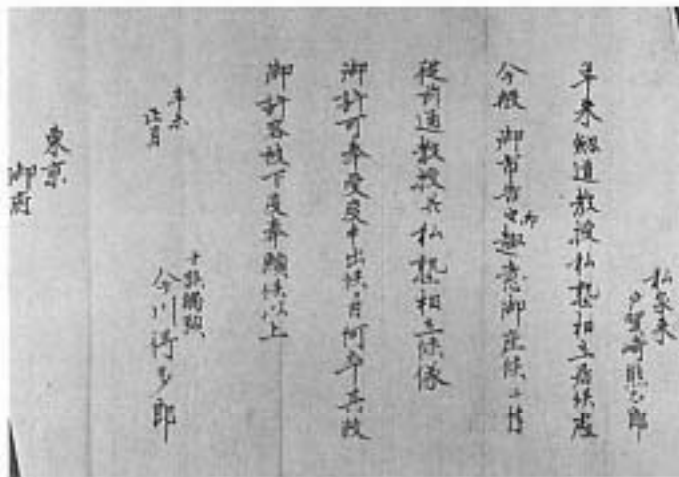 私家来
戸賀崎熊太郎
年来劔道教授私塾相立居候處
今般御布告之御趣意御座候ニ付
従前通教授共私塾相立候儀
御許可奉受度申出候間何卒其段
御許容被下度奉願候以上
辛未
正月
士族觸頭
今川
東京
御府